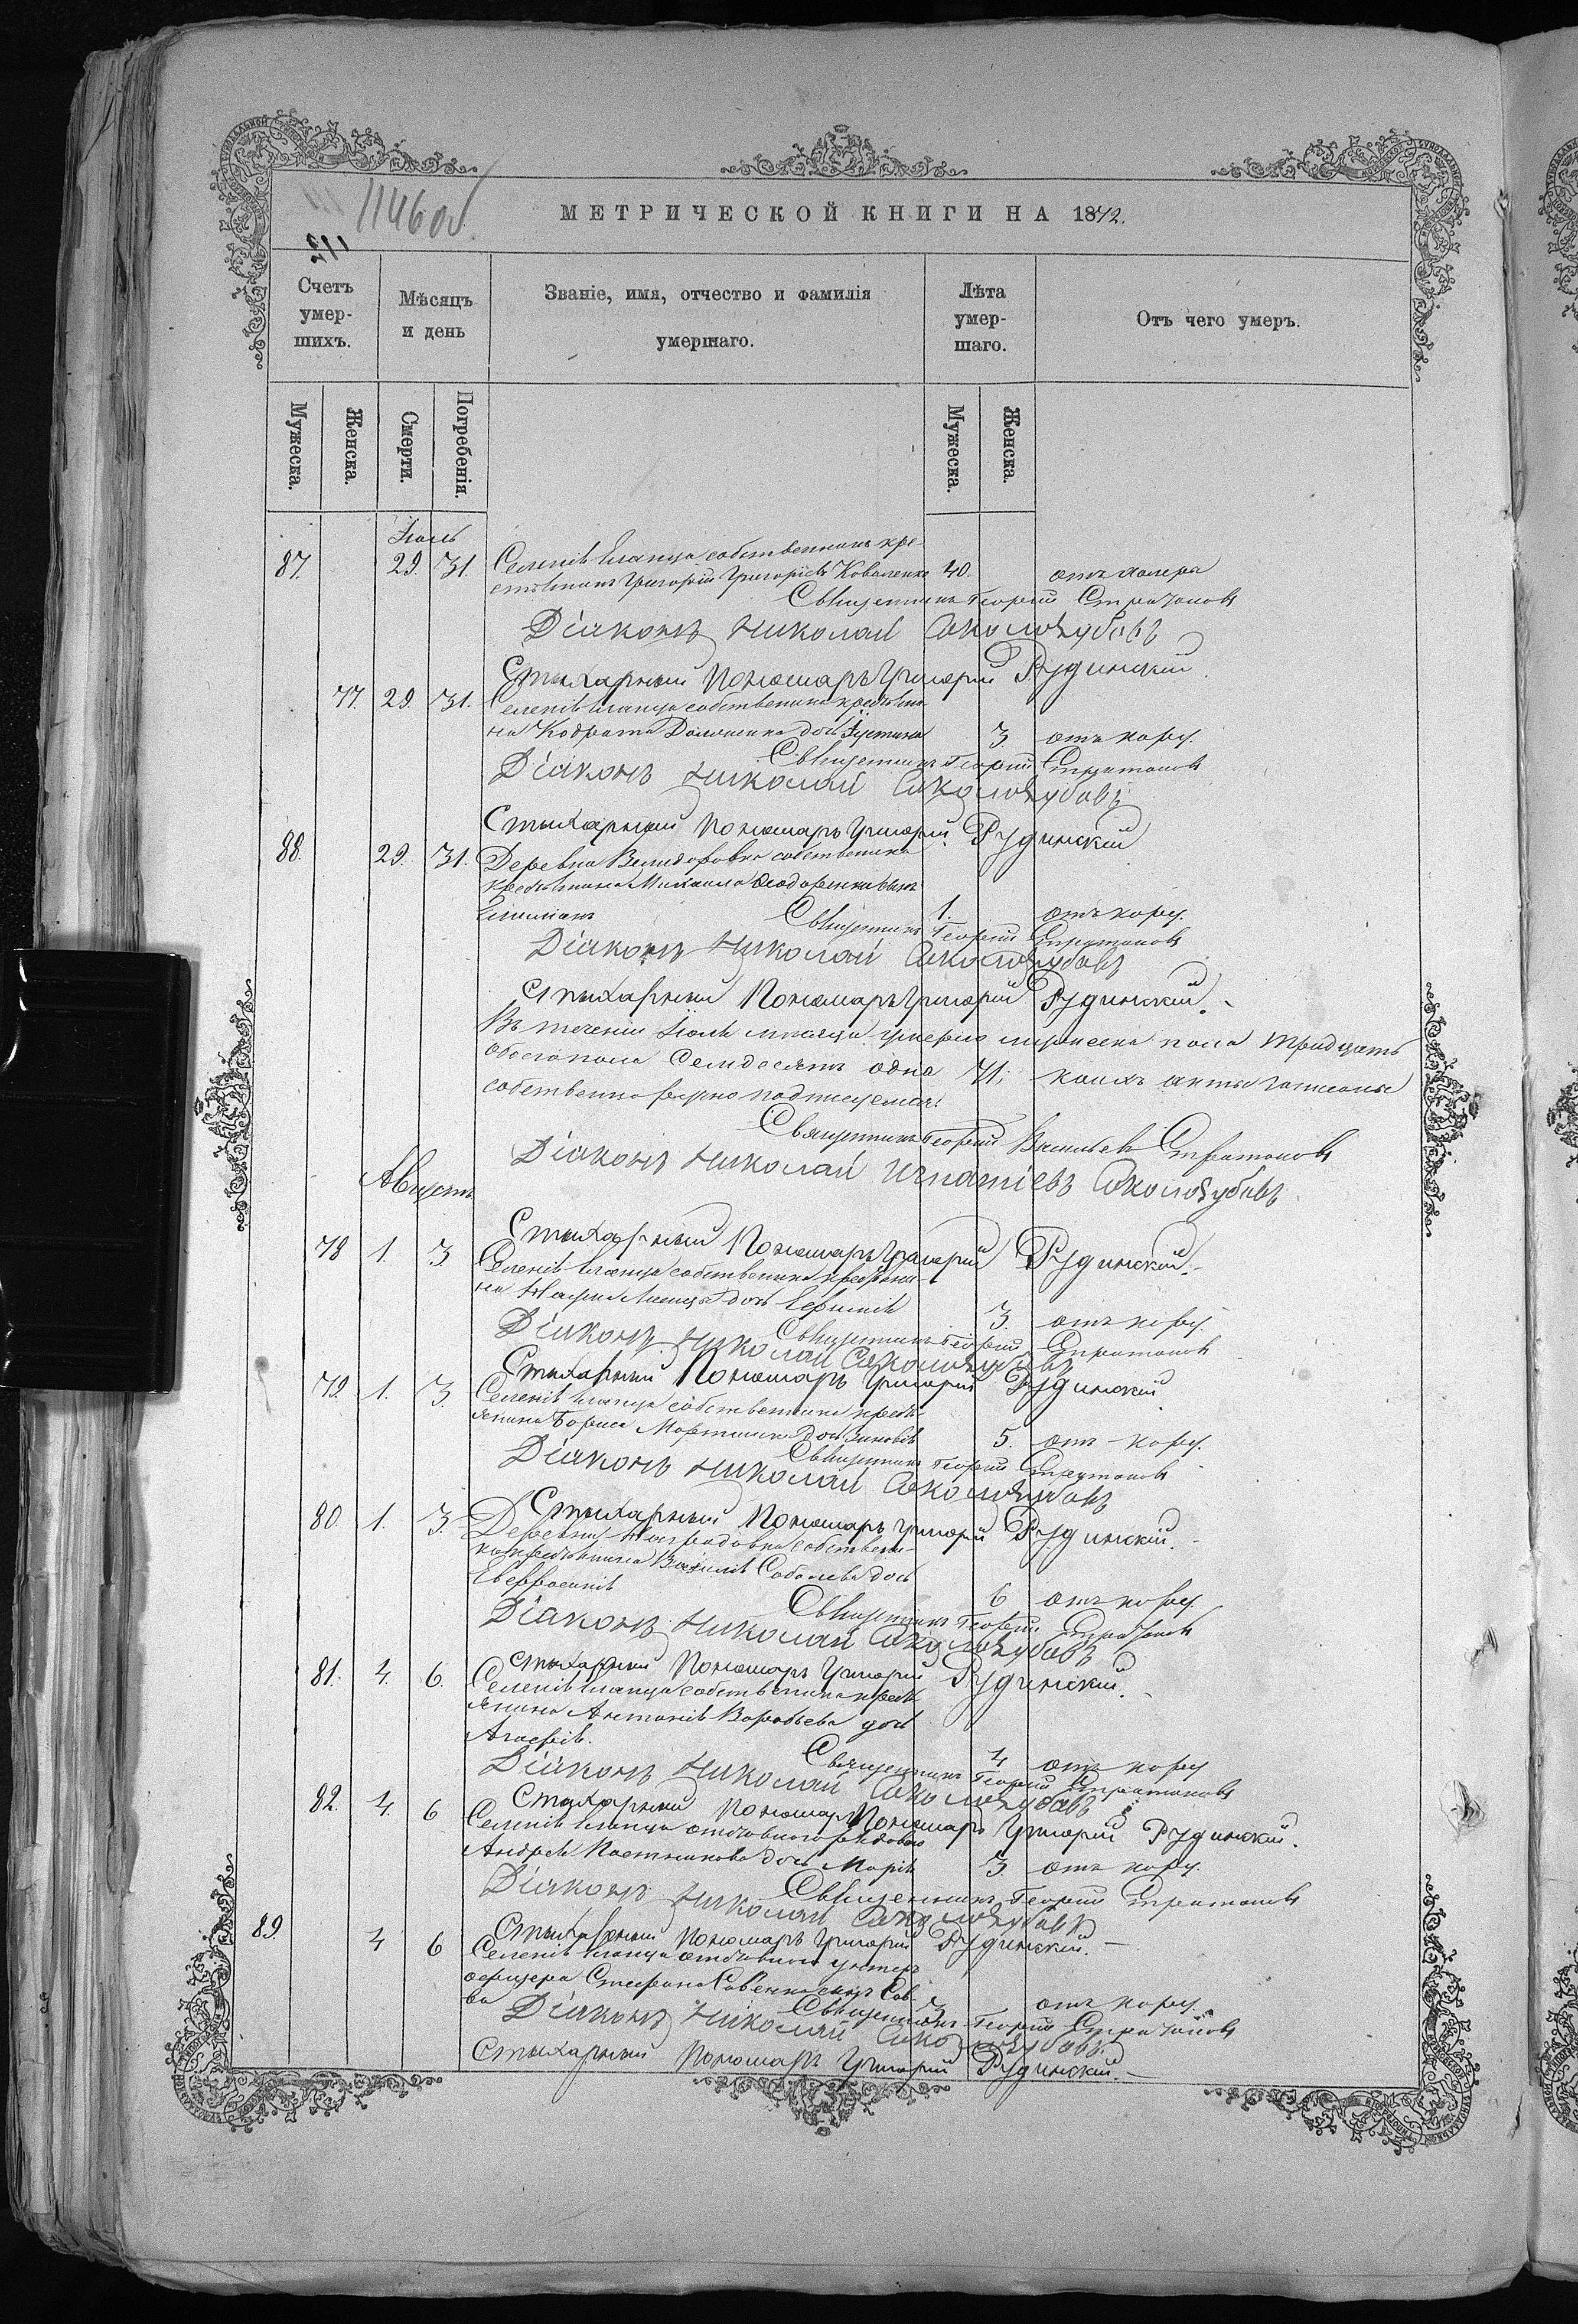 1146 об
112
МЕТРИЧЕСКОЙ КНИГИ НА 1872.
Счетъ умер-шихъ.
Мѣсяцъ и день
Званіе, имя, отчество и фамилія умершаго.
Лѣта умер-шаго.
Отъ чего умеръ.
Мужеска.
Женска.
Смерти.
Погребенія.
Мужеска.
Женска.
Іюль
87. 29. 31. Селенія собственникъ кре-
стьянинъ Григорій Григоріевъ Коваленко 40. отъ холеры
Священникъ Георгій Стратоновъ
Діаконъ Николай
Стихарный Пономарь Григорій Рудинскій.
77. 29. 31. Селенія собственника крестьяни
на Кодрата дочь Іустина 3 отъ кору.
Священникъ Георгій Стратоновъ
Діаконъ Николай
Стихарный Пономарь Григорій Рудинскій
88. 29. 31. Деревни собственника
крестьянина Михаила Ѳеодоренка сынъ
1. отъ кору.
Священникъ Георгій Стратоновъ
Діаконъ Николай
Стихарный Пономарь Григорій Рудинскій.
Въ теченіи Іюля месяца умерло мужеска пола тридцать
обоего пола Семдесятъ одна 71; коихъ акты записаны
собственно верно подписуемся:
Священникъ Георгій Васильевъ Стратоновъ
Діаконъ Николай Игнатіевъ
Августъ
Стихарный Пономарь Григорій Рудинскій.
78 1. 3. Селенія собственника крестьяни-
на дочь Евфимія 3. отъ кору.
Священникъ Георгій Стратоновъ
Діаконъ Николай
Стихарный Пономарь Григорій Рудинскій
79. 1. 3. Селенія собственника кресть
янина Бориса дочь Зиновія 5. отъ кору.
Священникъ Георгій Стратоновъ
Діаконъ Николай
Стихарный Пономарь Григорій Рудинскій.
80. 1. 3. Деревни собствени-
ка крестьянина Василія Соболева дочь
Евфросинія 6 отъ кору.
Священникъ Георгій Стратоновъ
Діаконъ Николай
Стихарный Пономарь Григорій Рудинскій.
81. 4. 6. Селенія собственника кресть
янина Антонія Воробьева дочь
Агафія. 4 отъ кору
Священникъ Георгій Стратоновъ
Діаконъ Николай
Стихарный Пономарь Пономарь Григорій Рудинскій.
82. 4. 6 Селенія рядового
Андрея Постникова дочь Марія 3. отъ кору.
Священникъ Георгій Стратоновъ
Діаконъ Николай
Стихарный Пономарь Григорій Рудинскій.
89. 4 6 Селенія унтеръ
офицера Стефана Савенка сынъ Сав-
ва 3 отъ кору.
Священникъ Георгій Стратоновъ
Діаконъ Николай
Стихарный Пономарь Григорій Рудинскій.